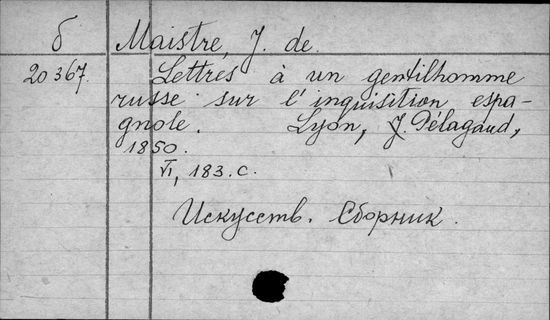 б Maistre, J. de.
20367. Lettres à un gentilhomme
russe sur l'inquisition espa-
gnole. Lyon, J. Pélagaud,
1850.
VI, 183.c.
Искусств. Сборник.